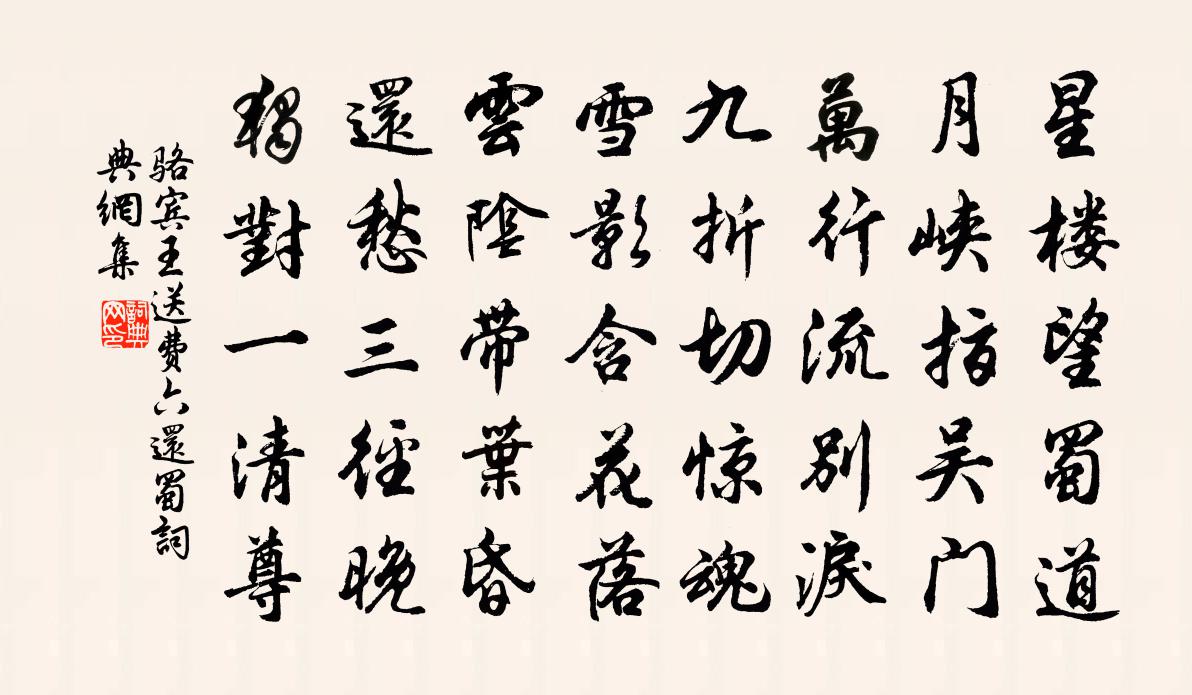 星楼望蜀道
月峡指吴门
萬行流別淚
九折切惊魂
雪影含花落
雲陰带葉昏
還愁三徑晚
獨對一清尊
骆宾王送費六還蜀詞
典網集
詞典
网印